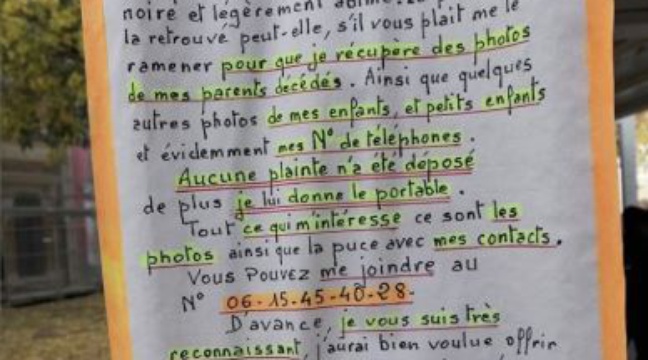 noire et légèrement
la retrouvé peut-elle, s'il vous plait me le
ramener pour que je récupère des photos
de mes parents décédés. Ainsi que quelques
autres photos de mes enfants, et petits enfants
et évidemment mes N° de téléphones.
Aucune plainte n'a été déposé
de plus je lui donne le portable.
Tout ce qui m'intéresse ce sont les
photos ainsi que la puce avec mes contacts.
Vous Pouvez me joindre au
N° 06-15-45-40-28-
D'avance, je vous suis très
reconnaissant j'aurai bien voulue offrir